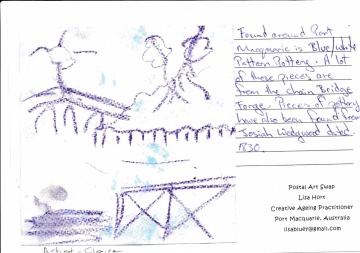 Found around Port
Macquarie is Blue/white
Pattern Pottery. A lot
of these pieces are
from the chain Bridge
Forge. Pieces of pottery
have also been found from
Josiah Wedgwood dated
1830.
Postal Art Swap
Lisa Hort
Creative Ageing Practitioner
Port Macquarie, Australia
Artist - Claire